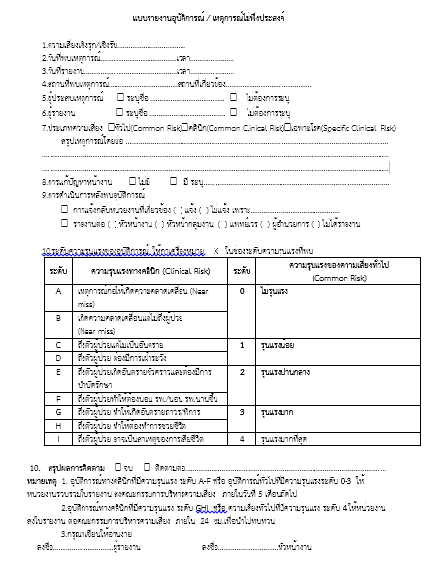 แบบรายงานอุบัติการณ์ / เหตุการณ์ไม่พึงประสงค์
1.ความเสี่ยงเชิงรุก/เชิงรับ..............................
2.วันที่พบเหตุการณ์..............................เวลา...................
3.วันที่รายงาน..............................เวลา...................
4.สถานที่พบเหตุการณ์..............................สถานที่เกี่ยวข้อง..............................
5.ผู้ประสบเหตุการณ์ ☐ ระบุชื่อ.............................. ☐ ไม่ต้องการระบุ
6.ผู้รายงาน ☐ ระบุชื่อ.............................. ☐ ไม่ต้องการระบุ
7.ประเภทความเสี่ยง ☐ทั่วไป(Common Risk)☐คลินิก(Common Clinical Risk)☐เฉพาะโรค(Specific Clinical Risk)
สรุปเหตุการณ์โดยย่อ ..............................
8.การแก้ปัญหาหน้างาน ☐ ไม่มี ☐ มี ระบุ..............................
9.การดำเนินการหลังพบอุบัติการณ์
☐ การแจ้งกลับหน่วยงานที่เกี่ยวข้อง ( ) แจ้ง ( ) ไม่แจ้ง เพราะ..............................
☐ รายงานต่อ ( ) หัวหน้างาน ( ) หัวหน้ากลุ่มงาน ( ) แพทย์เวร ( ) ผู้อำนวยการ ( ) ไม่ได้รายงาน
10.ระดับความรุนแรงของอุบัติการณ์ ให้กาเครื่องหมาย X ในช่องระดับความรุนแรงที่พบ
ระดับ ความรุนแรงทางคลินิก (Clinical Risk) ระดับ ความรุนแรงของความเสี่ยงทั่วไป
(Common Risk)
A เหตุการณ์ก่อให้เกิดความคลาดเคลื่อน (Near 0 ไม่รุนแรง
miss)
B เกิดความคลาดเคลื่อนแต่ไม่ถึงผู้ป่วย
(Near miss)
C ถึงตัวผู้ป่วยแต่ไม่เป็นอันตราย 1 รุนแรงน้อย
D ถึงตัวผู้ป่วย ต้องมีการเฝ้าระวัง
E ถึงตัวผู้ป่วยเกิดอันตรายชั่วคราวและต้องมีการ 2 รุนแรงปานกลาง
บำบัดรักษา
F ถึงตัวผู้ป่วยทำให้ต้องนอน รพ./นอน รพ.นานขึ้น
G ถึงตัวผู้ป่วย ทำให้เกิดอันตรายถาวร/พิการ 3 รุนแรงมาก
H ถึงตัวผู้ป่วย ทำให้ต้องทำการช่วยชีวิต
I ถึงตัวผู้ป่วย อาจเป็นสาเหตุของการเสียชีวิต 4 รุนแรงมากที่สุด
10. สรุปผลการติดตาม ☐ จบ ☐ ติดตามต่อ..............................
หมายเหตุ 1. อุบัติการณ์ทางคลินิกที่มีความรุนแรง ระดับ A-F หรือ อุบัติการณ์ทั่วไปที่มีความรุนแรงระดับ 0-3 ให้
หน่วยงานรวบรวมใบรายงาน ส่งคณะกรรมการบริหารความเสี่ยง ภายในวันที่ 5 เดือนถัดไป
2.อุบัติการณ์ทางคลินิกที่มีความรุนแรง ระดับ GHI หรือ ความเสี่ยงทั่วไปที่มีความรุนแรง ระดับ 4 ให้หน่วยงาน
ส่งใบรายงาน ต่อคณะกรรมการบริหารความเสี่ยง ภายใน 24 ชม.เพื่อนำไปทบทวน
3.กรุณาเขียนให้อ่านง่าย
ลงชื่อ..............................ผู้รายงาน ลงชื่อ..............................หัวหน้างาน